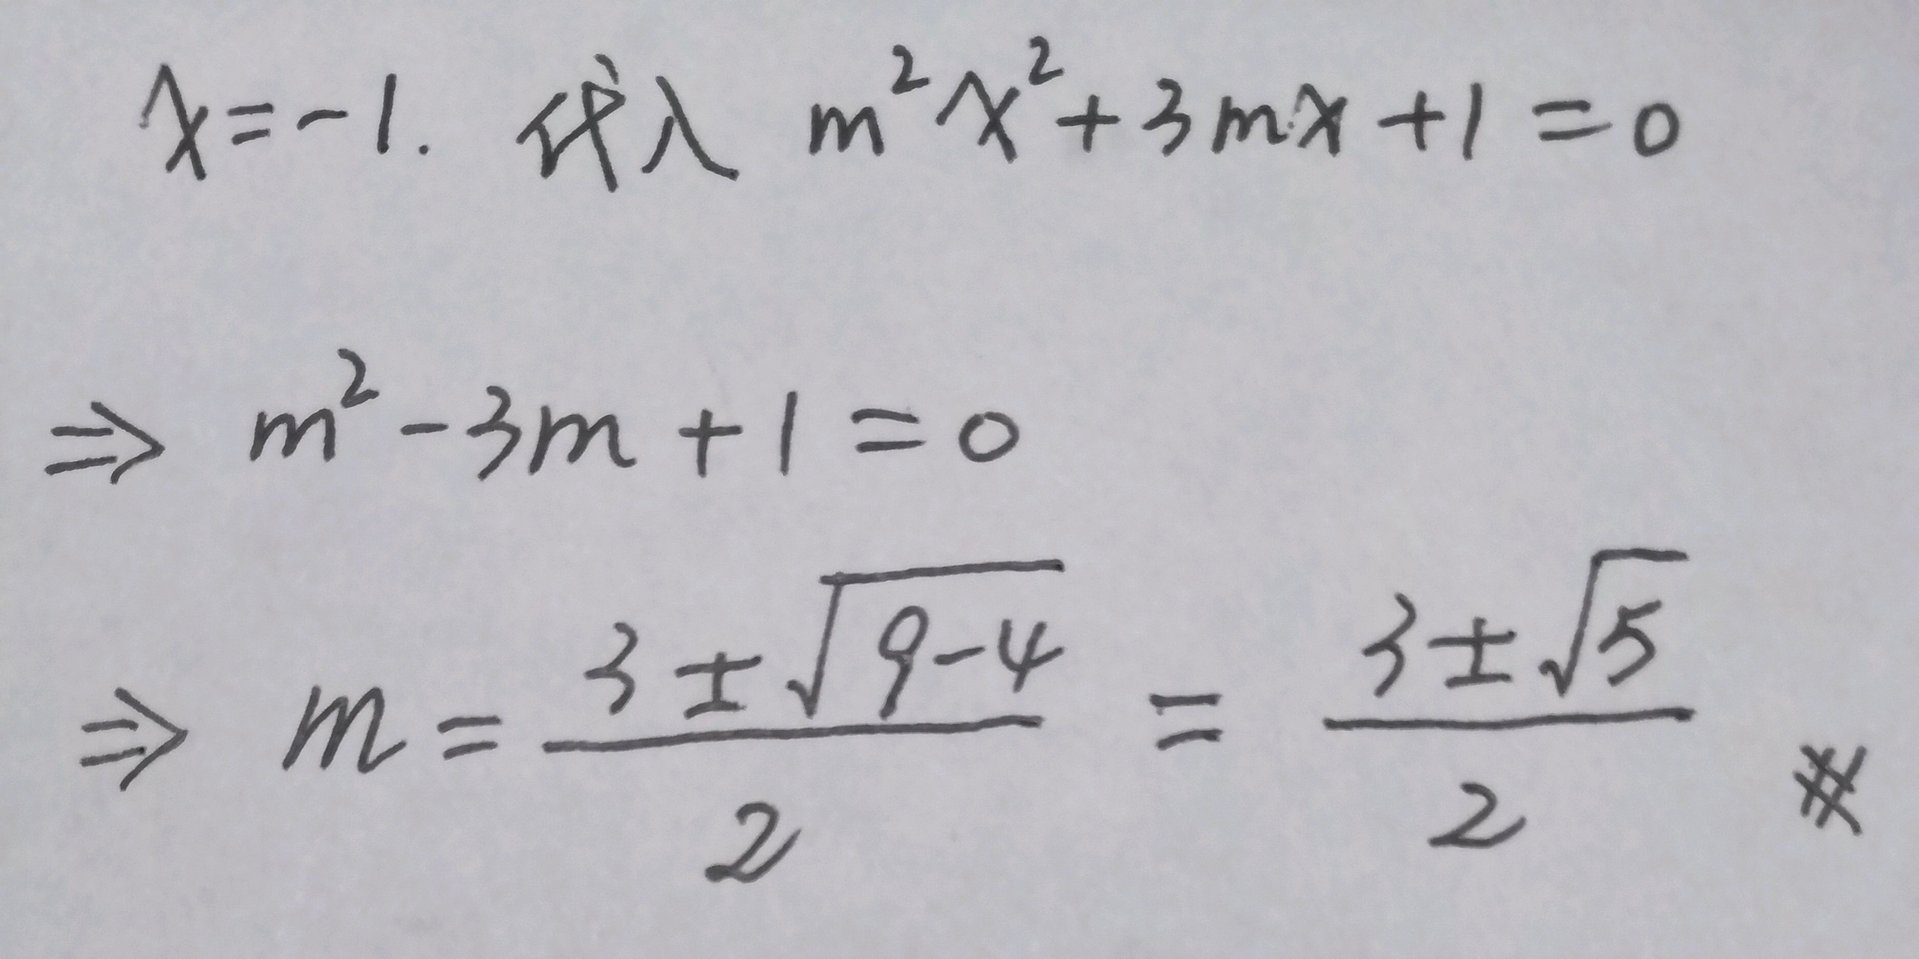 x=-1. 代入 m²x²+3mx+1=0
⇒ m²-3m+1=0
⇒ m = (3±√(9-4))/2 = (3±√5)/2 #